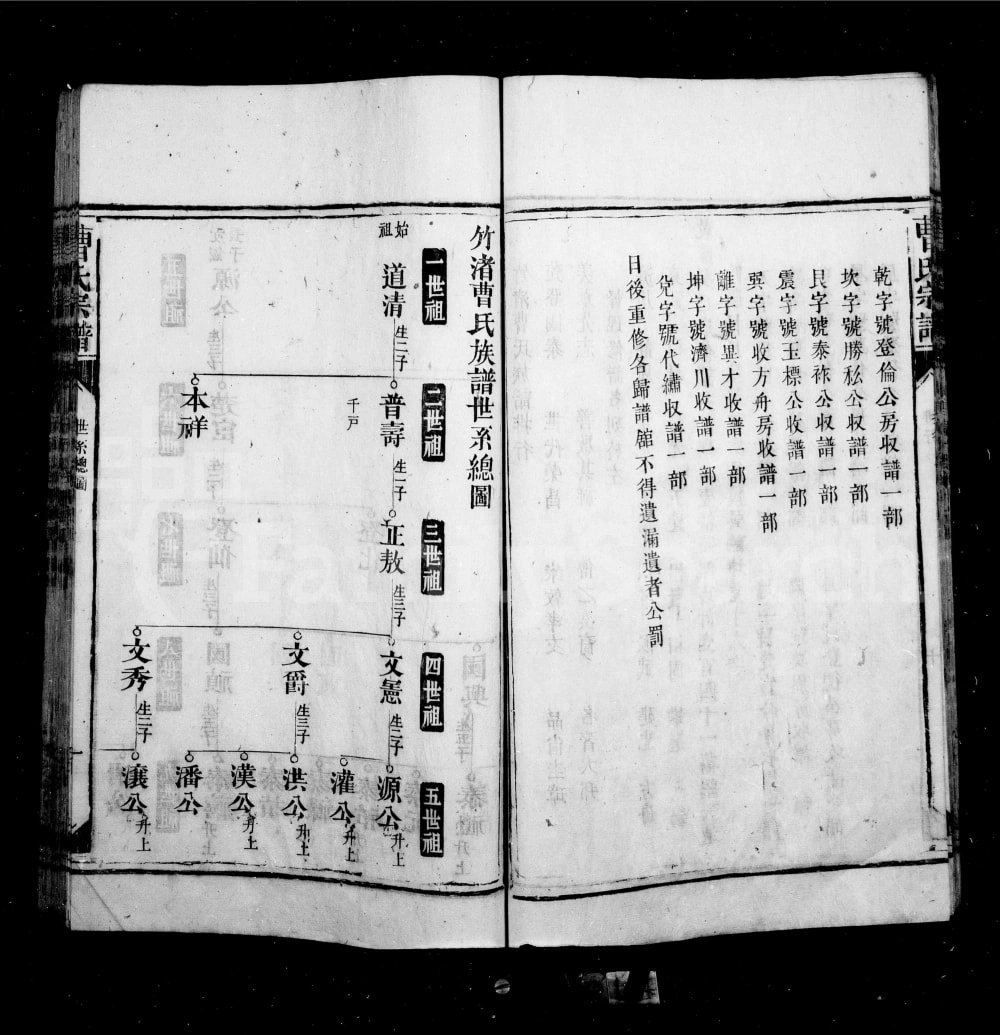 曹氏宗譜
乾字號登倫公房収譜一部
坎字號勝私公収譜一部
艮字號泰祚公収譜一部
震字號玉標公収譜一部
巽字號收方舟房収譜一部
離字號異才収譜一部
坤字號濟川収譜一部
兌字號代繡収譜一部
日後重修各歸譜舘不得遺漏遺者公罰
竹渚曹氏族譜世系總圖
一世祖
二世祖
三世祖
四世祖
五世祖
始祖
道清
生二子
普壽
生一子
正敖
生三子
文憲
生二子
源公
升上
千戶
灌公
升上
文爵
生三子
洪公
升上
漢公
升上
潘公
本祥
文秀
生二子
瀼公
升上
曹氏宗譜
世系總圖